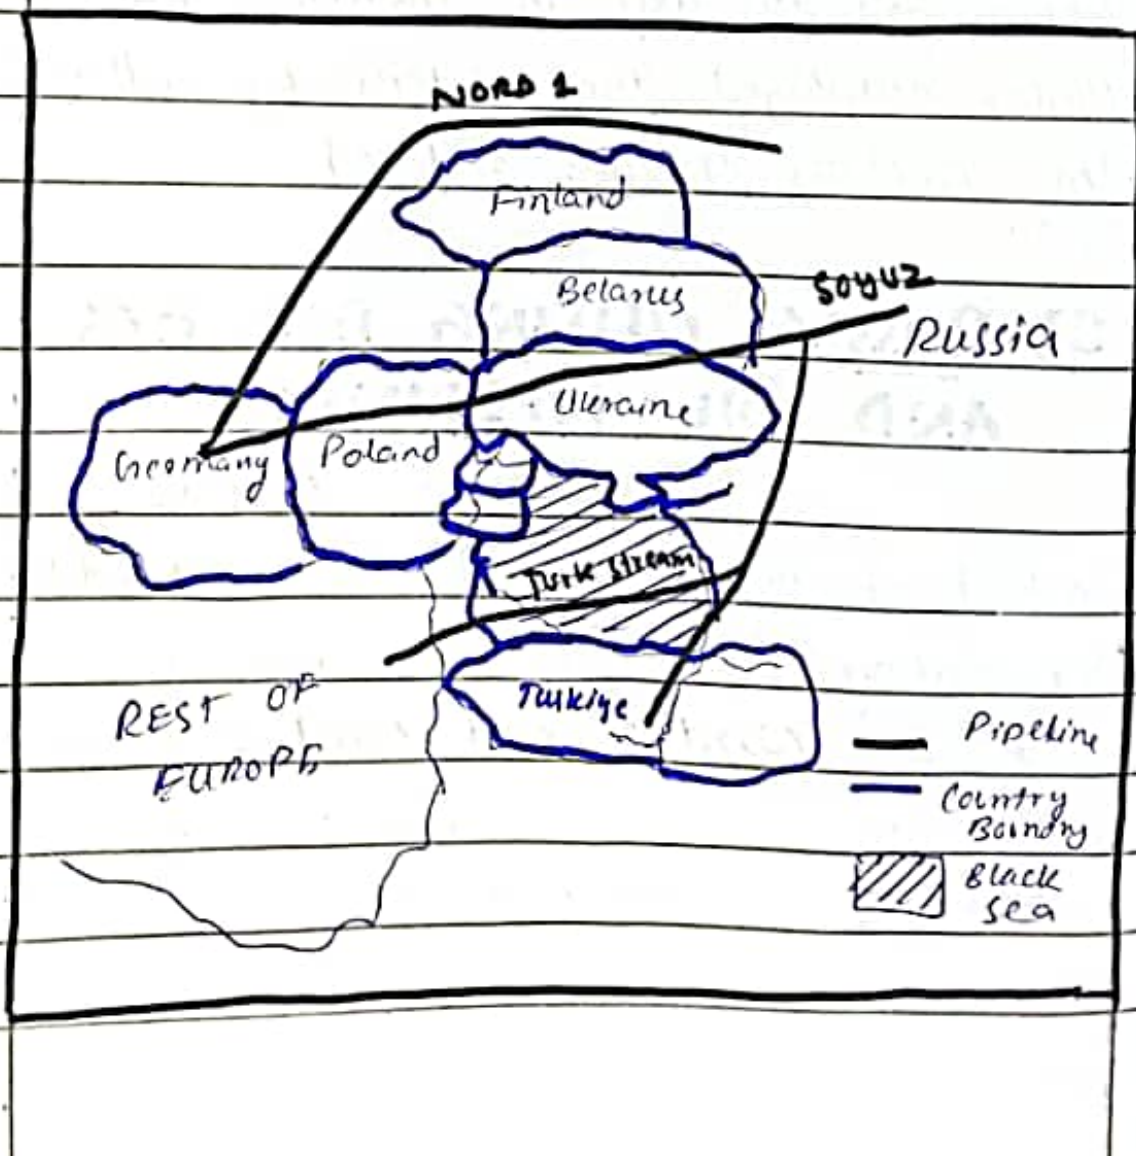 NORD 1
Finland
Belarus
SOYUZ
Russia
Ukraine
Poland
Geomany
Turk Stream
Turkiye
REST OF
EUROPE
Pipeline
Country
Boundry
Black
Sea